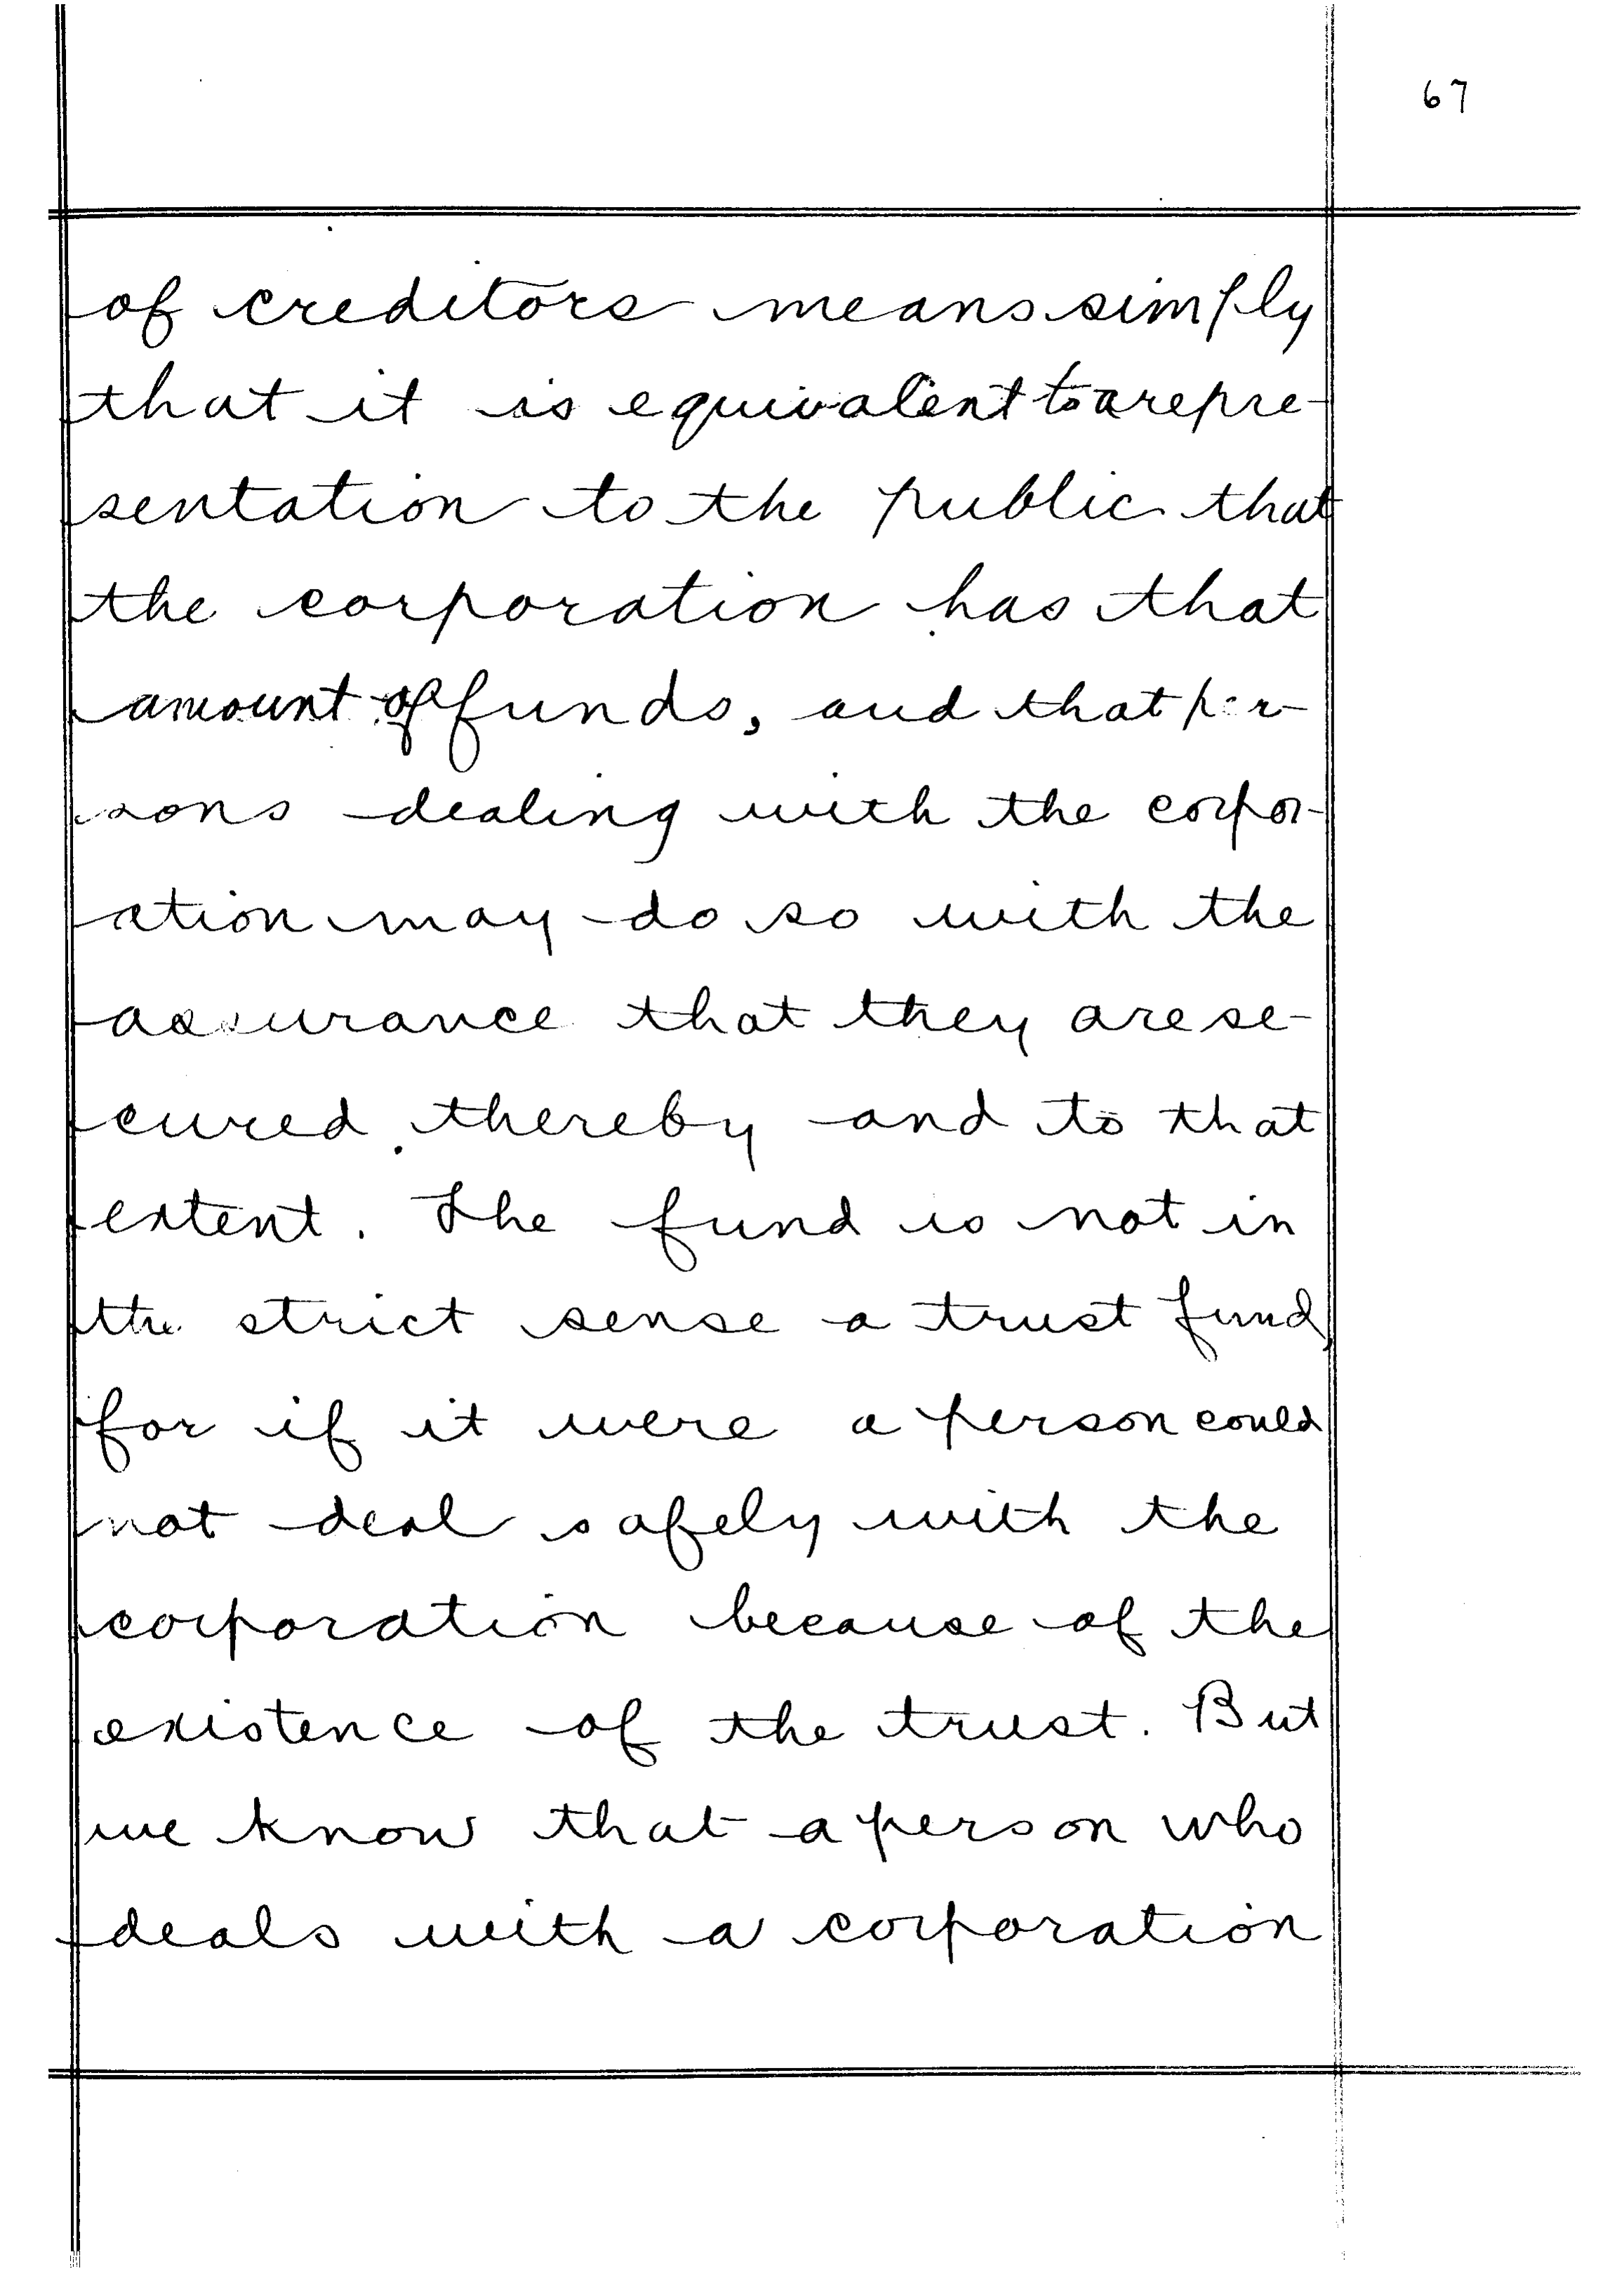 67
of creditors means simply
that it is equivalent to a repre-
sentation to the public that
the corporation has that
amount of funds, and that per-
sons dealing with the corpor-
ation may do so with the
assurance that they are se-
cured thereby and to that
extent. The fund is not in
the strict sense a trust fund,
for if it were a person could
not deal safely with the
corporation because of the
existence of the trust. But
we know that a person who
deals with a corporation